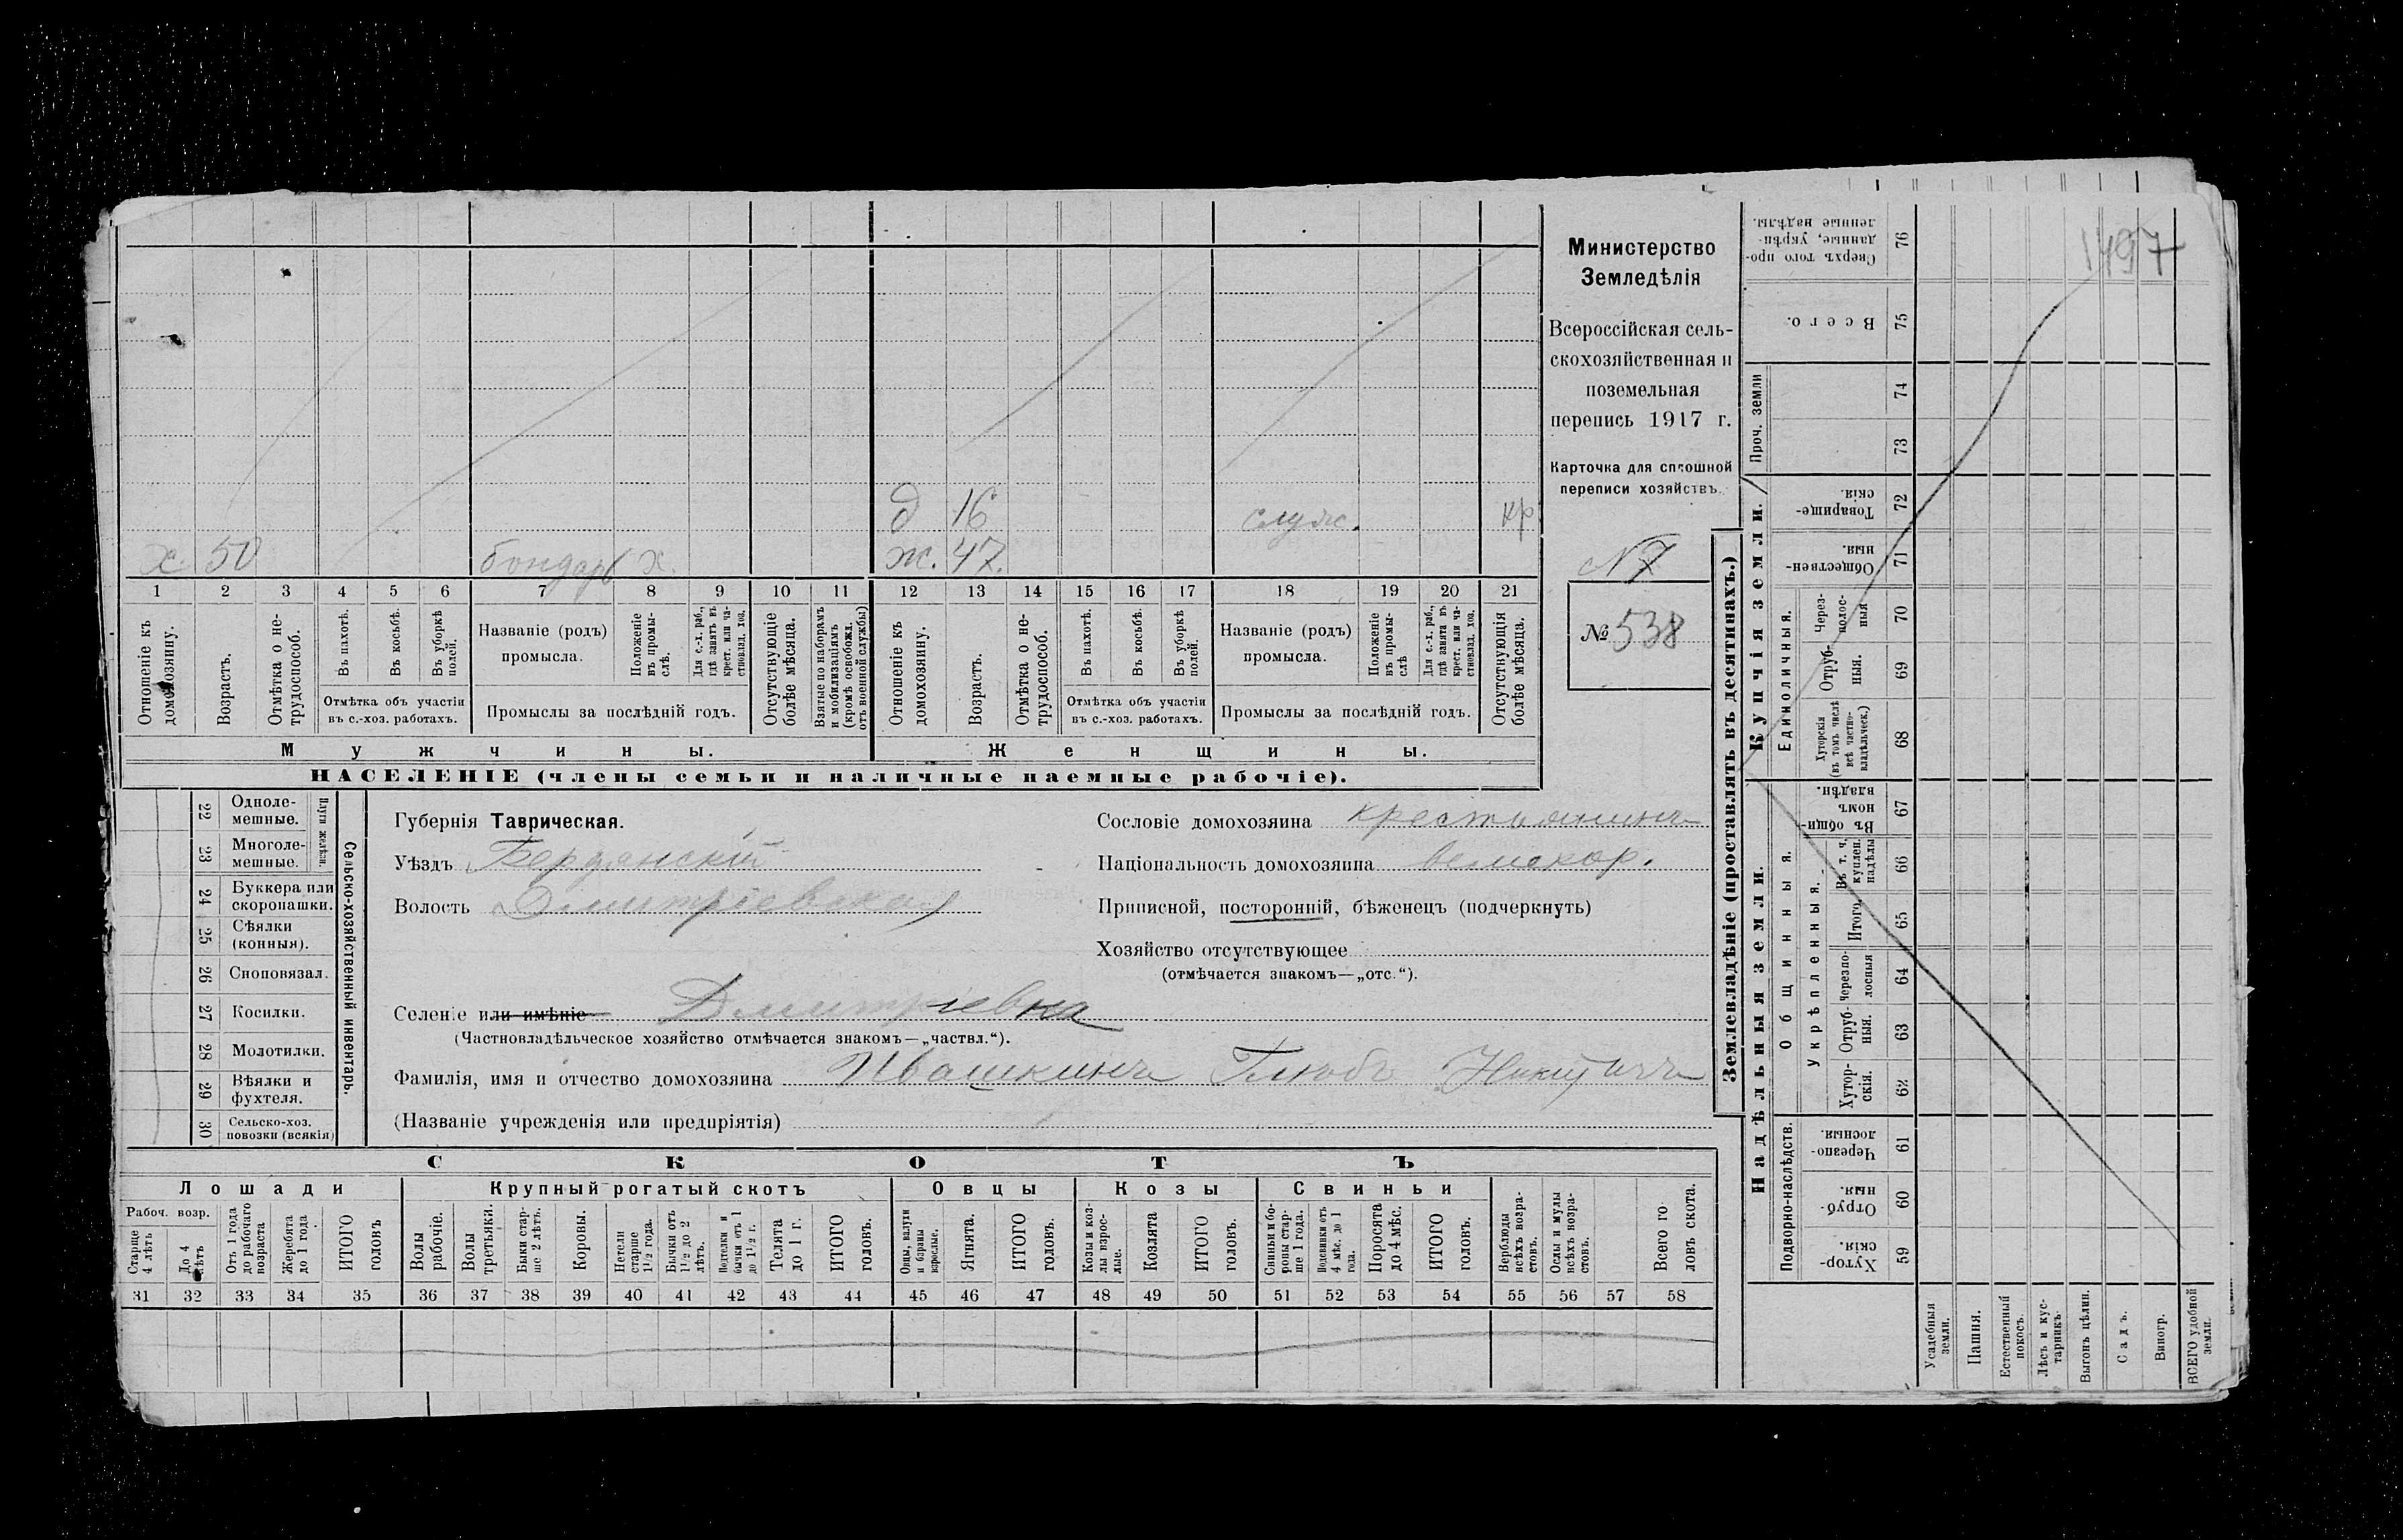 1497
Министерство
Земледѣлія
Всероссійская сель-
скохозяйственная и
поземельная
перепись 1917 г.
Карточка для сплошной
переписи хозяйствъ.
№ 7
№ 538
д 16 служ. кр
х. 50 бондарь х. ж. 47.
1 2 3 4 5 6 7 8 9 10 11 12 13 14 15 16 17 18 19 20 21
Отношеніе къ домохозяину.
Возрастъ.
Отмѣтка о не-трудоспособ.
Въ пахотѣ.
Въ косьбѣ.
Въ уборкѣ полей.
Отмѣтка объ участіи
въ с.-хоз. работахъ.
Названіе (родъ)
промысла.
Положеніе въ промы-слѣ.
Для с.-х. раб., гдѣ занятъ въ крест. или ча-стновлад. хоз.
Промыслы за послѣдній годъ.
Отсутствующіе болѣе мѣсяца.
Взятые по наборамъ и мобилизаціямъ (кромѣ освобожд. отъ военной службы)
Отношеніе къ домохозяину.
Возрастъ.
Отмѣтка о не-трудоспособ.
Въ пахотѣ.
Въ косьбѣ.
Въ уборкѣ полей.
Отмѣтка объ участіи
въ с.-хоз. работахъ.
Названіе (родъ)
промысла.
Положеніе въ промы-слѣ
Для с.-х. раб., гдѣ занята въ крест. или ча-стновлад. хоз.
Промыслы за послѣдній годъ.
Отсутствующія болѣе мѣсяца.
Мужчины. Женщины.
НАСЕЛЕНІЕ (члены семьи и наличные наемные рабочіе).
22 Одноле-мешные.
23 Многоле-мешные.
Плуги желѣзн.
24 Буккера или скоропашки.
25 Сѣялки (конныя).
26 Сноповязал.
27 Косилки.
28 Молотилки.
29 Вѣялки и фухтеля.
30 Сельско-хоз. повозки (всякія)
Сельско-хозяйственный инвентарь.
Губернія Таврическая.
Уѣздъ Бердянскій
Волость Дмитріевская
Сословіе домохозяина крестьянинъ
Національность домохозяина великор.
Приписной, посторонній, бѣженецъ (подчеркнуть)
Хозяйство отсутствующее
(отмѣчается знакомъ—„отс.“).
Селеніе или имѣніе Дмитріевка
(Частновладѣльческое хозяйство отмѣчается знакомъ—„частвл.“).
Фамилія, имя и отчество домохозяина Ивашкинъ Глѣбъ Никитичъ
(Названіе учрежденія или предпріятія)
СКОТЪ
Лошади Крупный рогатый скотъ Овцы Козы Свиньи
Рабоч. возр.
Старше 4 лѣтъ
До 4 лѣтъ
Отъ 1 года до рабочаго возраста
Жеребята до 1 года
ИТОГО головъ
Волы рабочіе.
Волы третьяки.
Быки стар-ше 2 лѣтъ.
Коровы.
Нетели старше 1½ года.
Бычки отъ 1½ до 2 лѣтъ.
Подтелки и бычки отъ 1 до 1½ г.
Телята до 1 г.
ИТОГО головъ.
Овцы, валухи и бараны взрослые.
Ягнята.
ИТОГО головъ.
Козы и коз-лы взрос-лые.
Козлята
ИТОГО головъ.
Свиньи и бо-ровы стар-ше 1 года.
Подсвинки отъ 4 мѣс. до 1 года.
Поросята до 4 мѣс.
ИТОГО головъ.
Верблюды всѣхъ возра-стовъ.
Ослы и мулы всѣхъ возра-стовъ.
Всего го-ловъ скота.
31 32 33 34 35 36 37 38 39 40 41 42 43 44 45 46 47 48 49 50 51 52 53 54 55 56 57 58
Землевладѣніе (проставлять въ десятинахъ.)
Купчія земли.
Надѣльныя земли.
Сверхъ того про-данные, укрѣп-ленные надѣлы. 76
Всего. 75
Проч. земли 74
73
Товарище-скія. 72
Обществен-ныя. 71
Единоличныя.
Через-полос-ныя 70
Отруб-ныя. 69
Хуторскія (въ томъ числѣ всѣ частно-владѣльческ.) 68
Общинныя.
Въ общин-номъ владѣн. 67
Укрѣпленныя.
Въ т. ч. куплен. надѣлы 66
Итого. 65
Черезпо-лосныя 64
Отруб-ныя. 63
Хутор-скія. 62
Подворно-наслѣдств.
Черезпо-лосныя. 61
Отруб-ныя. 60
Хутор-скія. 59
Усадебныя земли.
Пашня.
Естественный покосъ.
Лѣсъ и кус-тарникъ.
Выгонъ цѣлин.
Садъ.
Виногр.
ВСЕГО удобной земли.